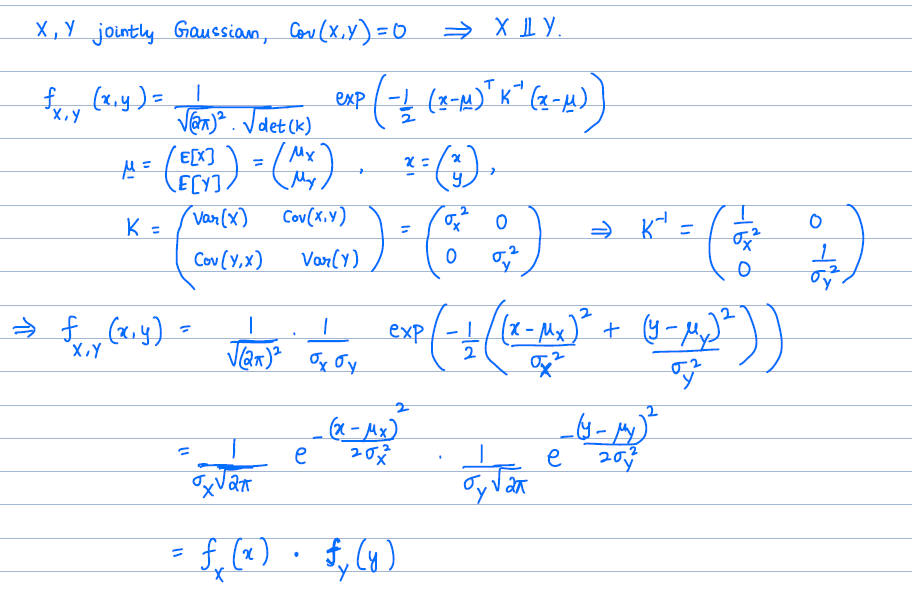 X, Y jointly Gaussian, Cov(X,Y) = 0 ⇒ X ⫫ Y.
f_{X,Y}(x,y) = \frac{1}{\sqrt{(2π)^2} . \sqrt{det(K)}} exp(-\frac{1}{2} (\underline{x}-\underline{μ})^T K^{-1} (\underline{x}-\underline{μ}))
\underline{μ} = \begin{pmatrix} E[X] \\ E[Y] \end{pmatrix} = \begin{pmatrix} μ_X \\ μ_Y \end{pmatrix} , \underline{x} = \begin{pmatrix} x \\ y \end{pmatrix} ,
K = \begin{pmatrix} Var(X) & Cov(X,Y) \\ Cov(Y,X) & Var(Y) \end{pmatrix} = \begin{pmatrix} σ_X^2 & 0 \\ 0 & σ_Y^2 \end{pmatrix} ⇒ K^{-1} = \begin{pmatrix} \frac{1}{σ_X^2} & 0 \\ 0 & \frac{1}{σ_Y^2} \end{pmatrix}
⇒ f_{X,Y}(x,y) = \frac{1}{\sqrt{(2π)^2}} . \frac{1}{σ_X σ_Y} exp(-\frac{1}{2}(\frac{(x-μ_X)^2}{σ_X^2} + \frac{(y-μ_Y)^2}{σ_Y^2}))
= \frac{1}{σ_X\sqrt{2π}} e^{-\frac{(x-μ_X)^2}{2σ_X^2}} . \frac{1}{σ_Y\sqrt{2π}} e^{-\frac{(y-μ_Y)^2}{2σ_Y^2}}
= f_X(x) . f_Y(y)